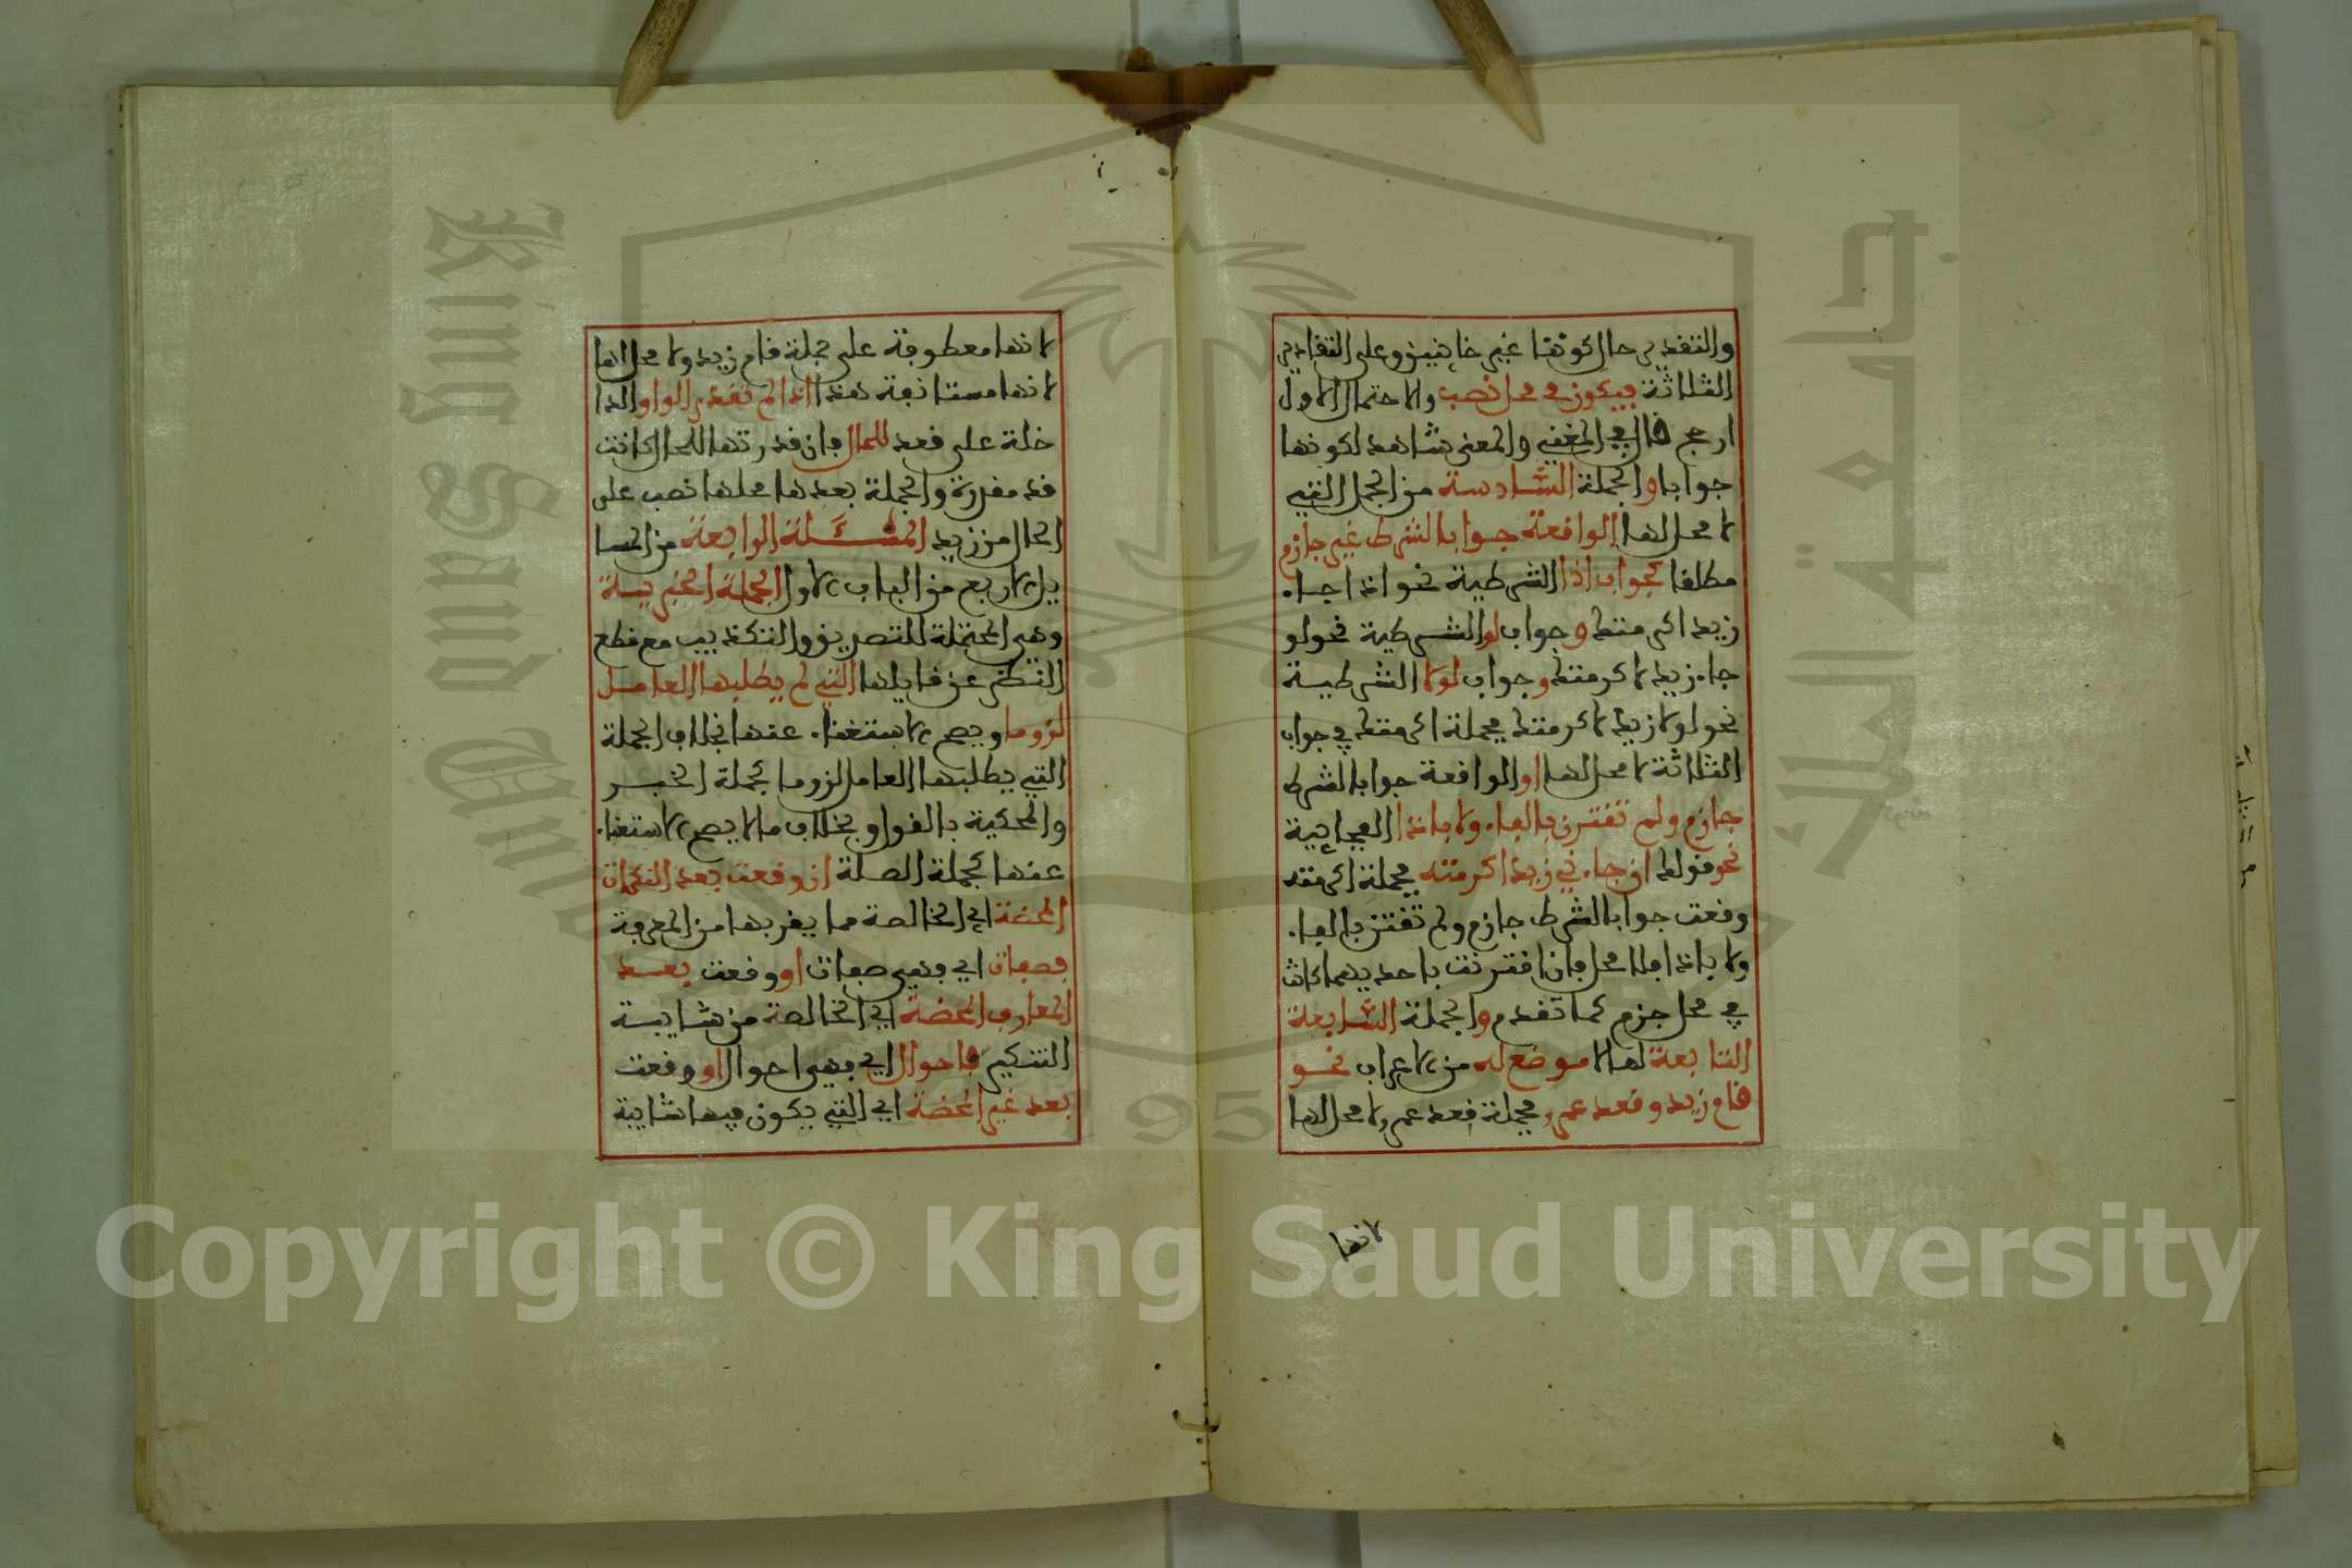 والتقدير حال كونها غير خاينين وعلى التقادير
الثلاثة فيكون في محل نصب والاحتمال الاول
ارجح قال في المغني والمعنى شاهد لكونها
جوابا والجملة السادسة من الجمل التي
لا محل لها الواقعة جوابا لشرط غير جازم
مطلقا كجواب اذا الشرطية نحو اذا جاء
زيد اكرمتك وجواب لو الشرطية نحو لو
جاء زيد لاكرمتك وجواب لولا الشرطية
نحو لولا زيد لاكرمتك فجملة اكرمتك في جواب
الثلاثة لا محل لها او الواقعة جوابا لشرط
جازم ولم تقترن بالفاء ولا باذا الفجاءية
نحو قولك ان جاءني زيد اكرمته فجملة اكرمته
وقعت جوابا لشرط جازم ولم تقترن بالفاء
ولا باذا فلا محل فان اقترنت باحديهما كانت
في محل جزم كما تقدم والجملة السابعة
التابعة لما لا موضع له من الاعراب نحو
قام زيد وقعد عمرو فجملة قعد عمرو لا محل لها
لانها
لانها معطوفة على جملة قام زيد ولا محل لها
لانها مستانفة هذا اذا لم تقدر الواو الدا
خلة على قعد للحال فان قدرتها للحال كانت
قد مقدرة والجملة بعدها محلها نصب على
الحال من زيد المسئلة الرابعة من المسا
يل الاربع من الباب الاول الجملة الخبرية
وهي المحتملة للتصديق والتكذيب مع قطع
النظر عن قايلها التي لم يطلبها العامل
لزوما ويصح الاستغناء عنها بخلاف الجملة
التي يطلبها العامل لزوما كجملة الخبر
والمحكية بالقول وبخلاف ما لا يصح الاستغناء
عنها كجملة الصلة ان وقعت بعد النكرات
المحضة اي الخالصة مما يقربها من المعرفة
فصفات اي فهي صفات او وقعت بعد
المعارف المحضة اي الخالصة من شايبة
التنكير فاحوال اي فهي احوال او وقعت
بعد غير المحضة اي التي يكون فيها شايبة
King Saud University
1957
Copyright © King Saud University